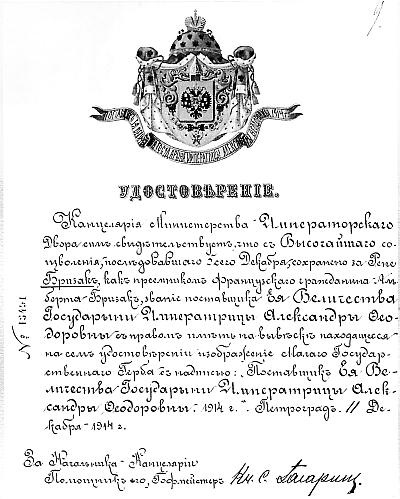 УДОСТОВѢРЕНІЕ.
Канцелярія Министерства Императорскаго
Двора симъ свидѣтельствуетъ, что съ Высочайшаго со-
изволенія, послѣдовавшаго 5сего Декабря, сохранено за Рене
Бризакъ, какъ преемникомъ французскаго гражданина Аль-
берта Бризакъ, званіе поставщика Ея Величества
Государыни Императрицы Александры Ѳео-
доровны съ правомъ имѣть на вывѣскѣ находящееся
на семъ удостовѣреніи изображеніе Малаго Государ-
ственнаго Герба съ надписью: Поставщикъ Ея Ве-
личества Государыни Императрицы Алек-
сандры Ѳеодоровны. 1914 г. Петроградъ. 11 Де-
кабря 1914 г.
За Начальника Канцеляріи
Помощникъ его, Гофмейстеръ Кн. С. Гагаринъ
№ 13491